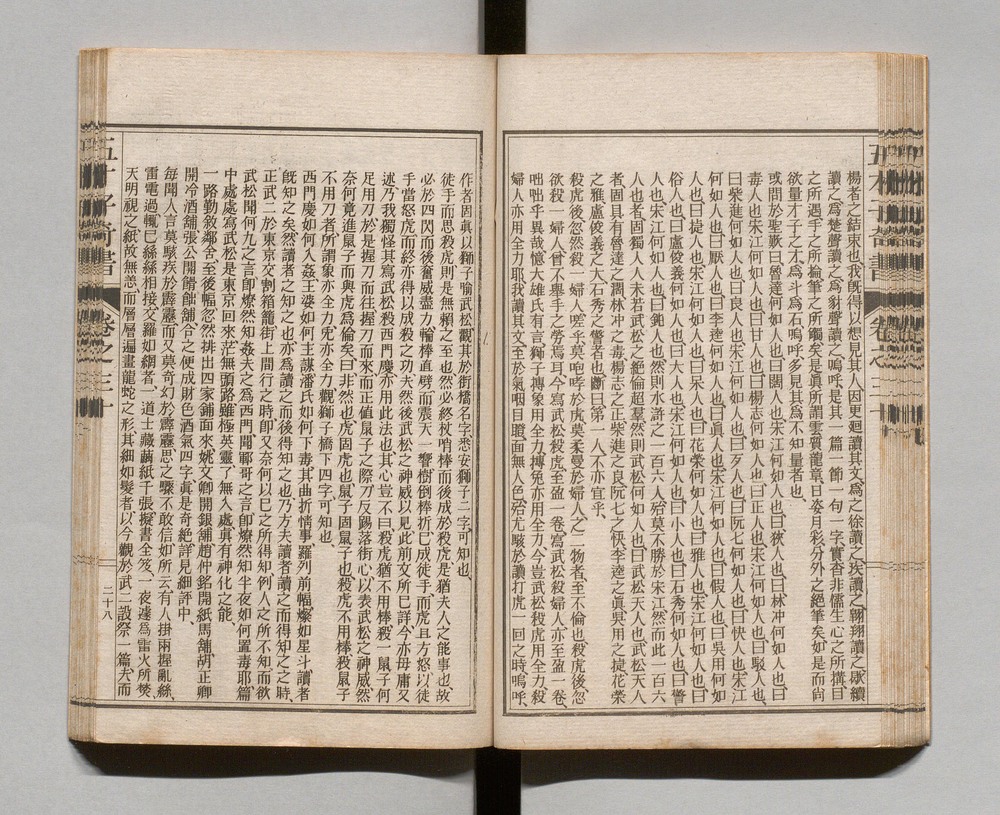 楊者之結束也我旣得以想見其人因更廻讀其文爲之徐讀之疾讀之翱翔讀之歇續
讀之爲楚聲讀之爲豺聲讀之嗚呼是其一篇一節一句一字實杳非儒生心之所搆目
之所遇手之所掄筆之所觸矣是眞所謂雲質龍章日姿月彩分外之絕筆矣如是而尙
欲量才子之才爲斗爲石嗚呼多見其爲不知量者也
或問於聖歎曰魯達何如人也曰闊人也宋江何如人也曰狹人也曰林冲何如人也曰
毒人也宋江何如人也曰甘人也曰楊志何如人也曰正人也宋江何如人也曰駁人也
曰柴進何如人也曰良人也宋江何如人也曰歹人也曰阮七何如人也曰快人也宋江
何如人也曰厭人也曰李逵何如人也曰眞人也宋江何如人也曰假人也曰吳用何如
人也曰捷人也宋江何如人也曰呆人也曰花榮何如人也曰雅人也宋江何如人也曰
俗人也曰盧俊義何如人也曰大人也宋江何如人也曰小人也曰石秀何如人也曰警
人也宋江何如人也曰鈍人也然則水滸之一百六人殆莫不勝於宋江然而此一百六
人也者固獨人人未若武松之絕倫超羣然則武松何如人也曰武松天人也武松天人
者固具有魯達之闊林冲之毒楊志之正柴進之良阮七之快李逵之眞吳用之捷花榮
之雅盧俊義之大石秀之警者也斷曰第一人不亦宜乎
殺虎後忽然殺一婦人嗟乎莫咆哮於虎莫柔曼於婦人之二物者至不倫也殺虎後忽
欲殺一婦人曾不舉手之勞焉耳今寫武松殺虎至盈一卷寫武松殺婦人亦至盈一卷
咄咄乎異哉憶大雄氏有言獅子搏象用全力搏兔亦用全力今豈武松殺虎用全力殺
婦人亦用全力耶我讀其文至於氣咽目瞪面無人色殆尤駭於讀打虎一回之時嗚呼
作者固眞以獅子喻武松觀其於街橋名字悉安獅子二字可知也
徒手而思殺虎則是無賴之至也然必終杖哨棒而後成於殺虎是猶夫人之能事也故
必於四閃而後奮威盡力輪棒直劈而震天一響樹倒棒折已成徒手而虎且方怒以徒
手當怒虎而終亦得以成殺之功夫然後武松之神威以見此前文所已詳今亦毋庸又
述乃我獨怪其寫武松殺西門慶亦用此法也其心豈不曰殺虎猶不用棒殺一鼠子何
足用刀於是握刀而往握刀而來而正值鼠子之際刀反踢落街心以表武松之神威然
奈何竟進鼠子而與虎爲倫矣曰非然也虎固虎也鼠子固鼠子也殺虎不用棒殺鼠子
不用刀者所謂象亦全力兔亦全力觀獅子橋下四字可知也
西門慶如何入姦王婆如何主謀潘氏如何下毒其曲折情事羅列前幅燦如星斗讀者
旣知之矣然讀者之知之也亦爲讀之而後得知之也乃方夫讀者讀之而得知之之時
正武二於東京交割箱籠街上閒行之時卽又奈何以己之所得知例人之所不知而欲
武松聞何九之言卽燎然知姦夫之爲西門聞鄆哥之言卽燎然知半夜如何置毒耶篇
中處處寫武松是東京回來茫無頭路雖極英靈了無入處眞有神化之能
一路勤敘鄰舍至後幅忽然排出四家鋪面來姚文卿開銀舖趙仲銘開紙馬舖胡正卿
開冷酒舖張公開餶飿舖合之便成財色酒氣四字眞是奇絕詳見細評中
每聞人言莫駭疾於霹靂而又莫奇幻於霹靂思之驟不敢信如所云有人掛兩握亂絲
雷電過輒已絲絲相接交羅如網者一道士藏繭紙千張擬書全笈一夜遽爲雷火所焚
天明視之紙故無恙而層層遍畫龍蛇之形其細如髮者以今觀於武二設祭一篇夫而
卷之三十
二十八